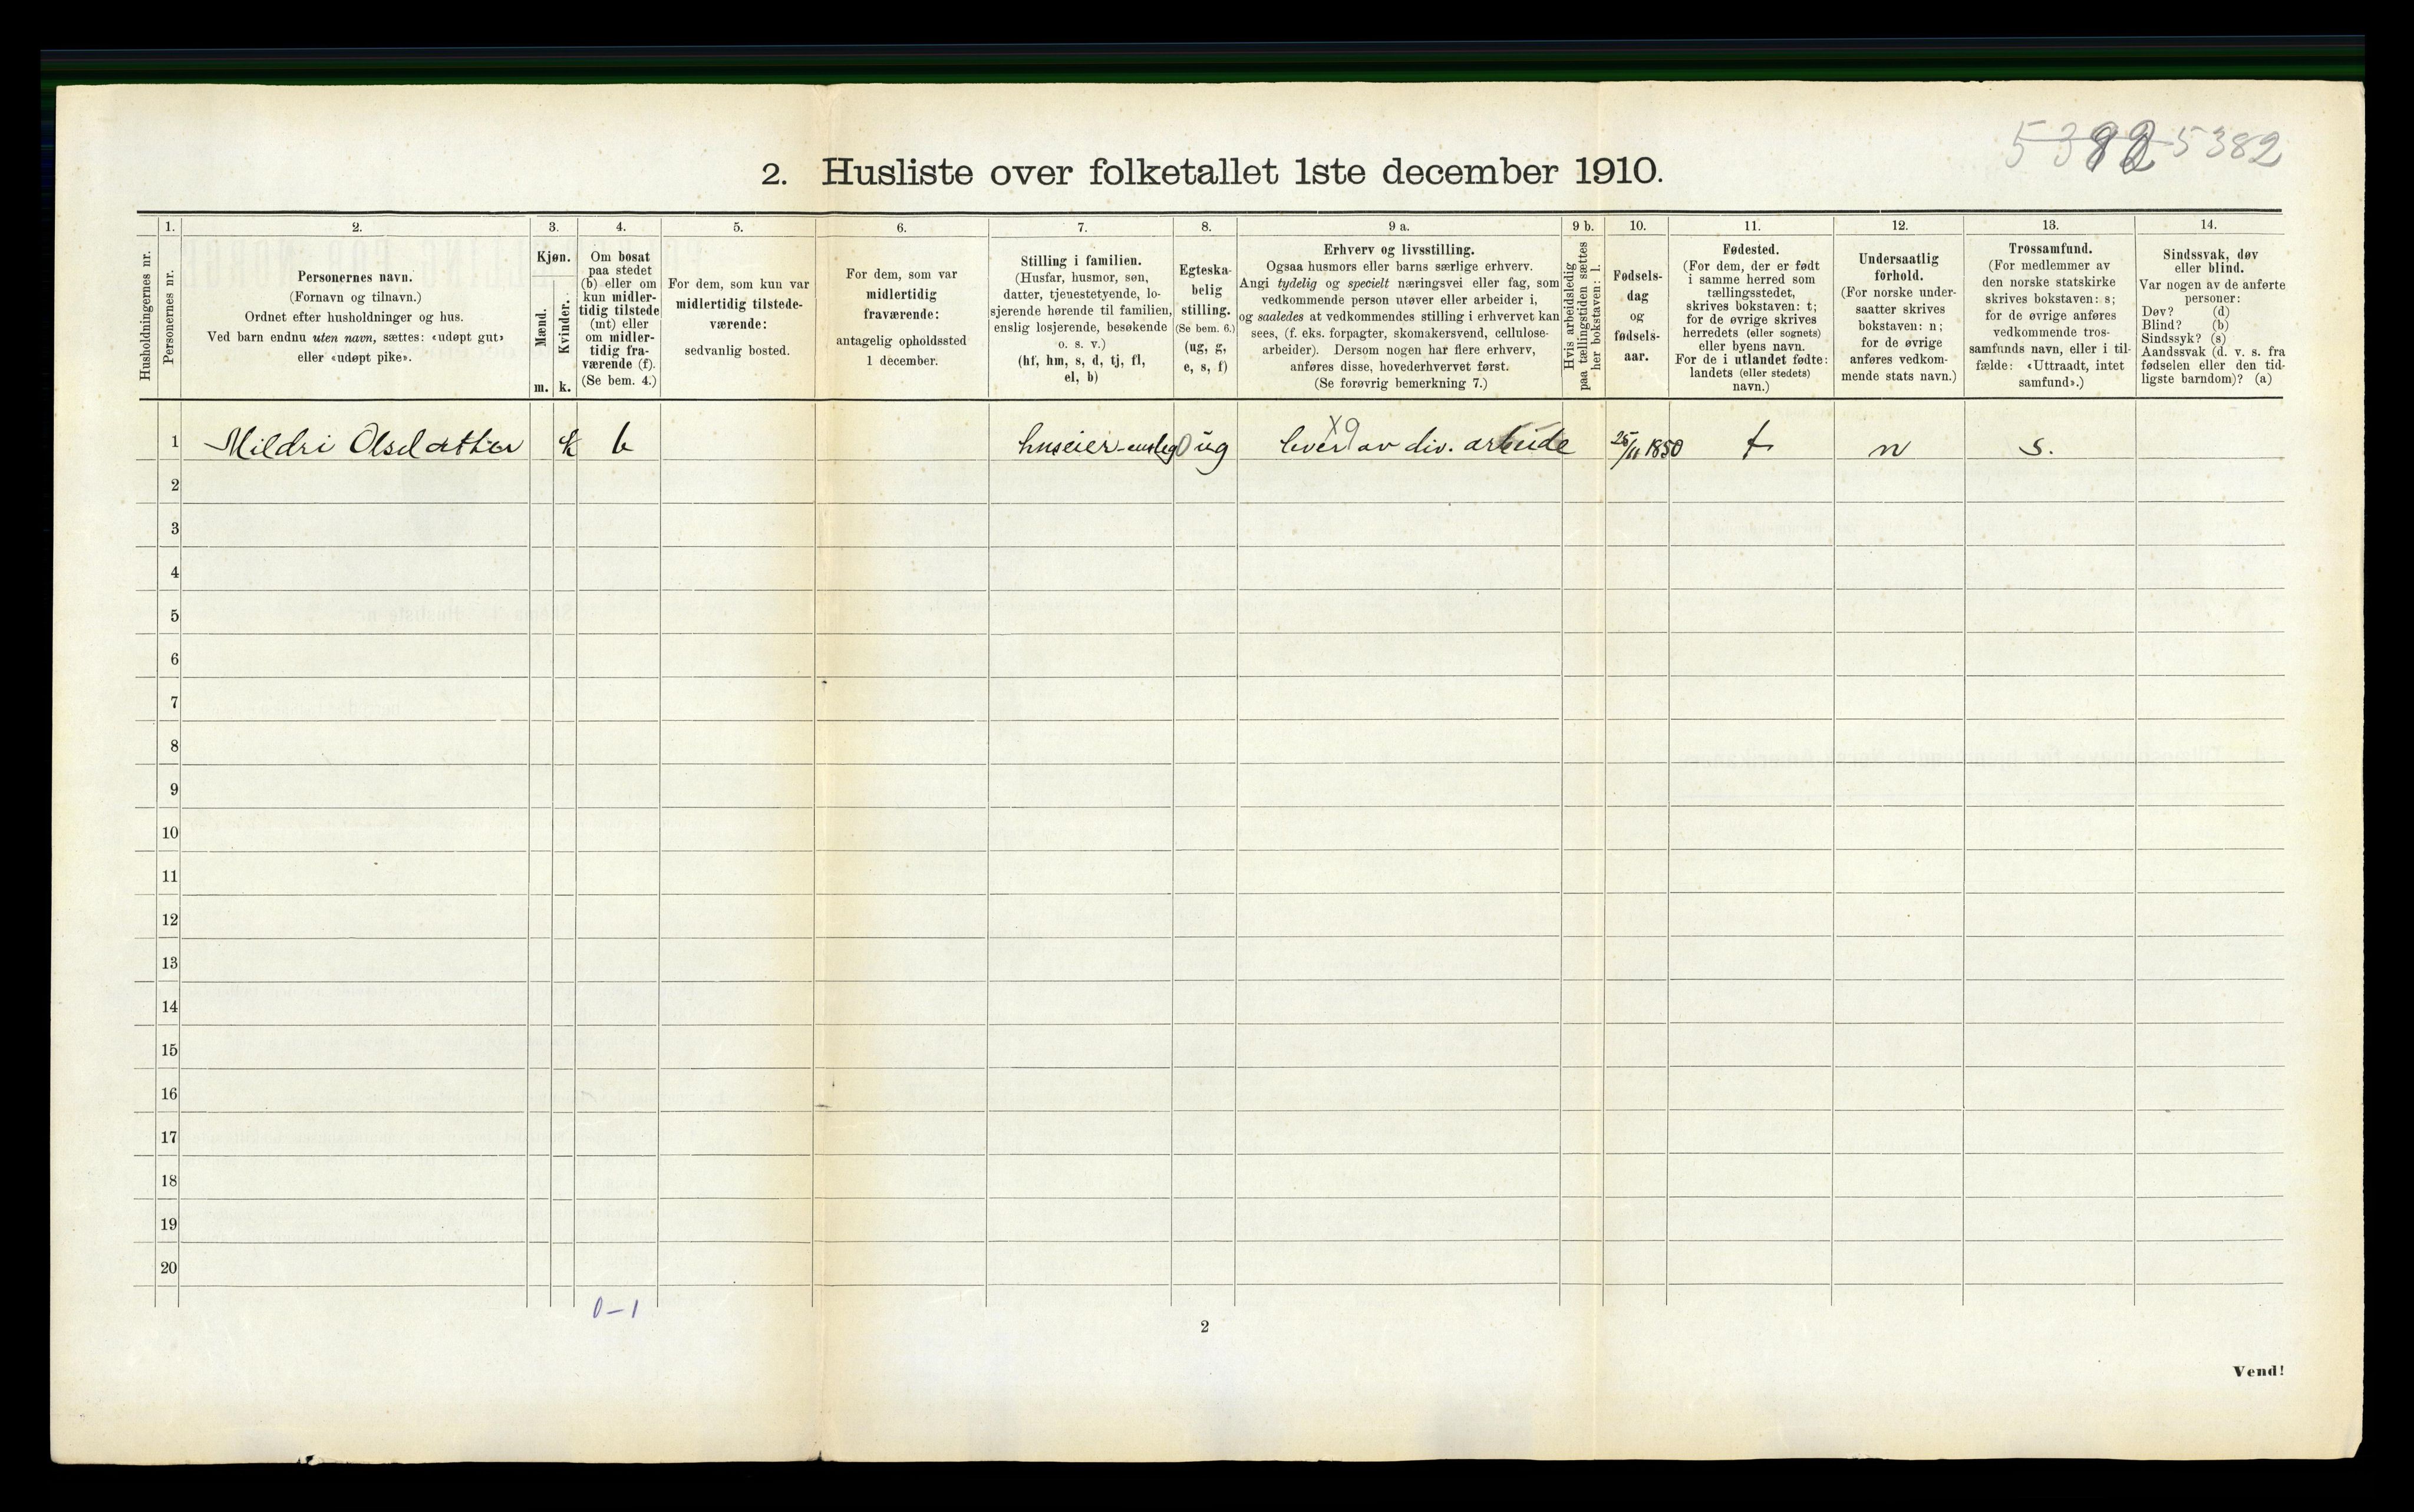 5382 5382
2. Husliste over folketallet 1ste december 1910.
Husholdningernes nr.
1.
Personernes nr.
2.
Personernes navn.
(Fornavn og tilnavn.)
Ordnet efter husholdninger og hus.
Ved barn endnu uten navn, sættes: «udøpt gut»
eller «udøpt pike».
3.
Kjøn.
Mænd.
Kvinder.
m. k.
4.
Om bosat
paa stedet
(b) eller om
kun midler-
tidig tilstede
(mt) eller
om midler-
tidig fra-
værende (f).
(Se bem. 4.)
5.
For dem, som kun var
midlertidig tilstede-
værende:
sedvanlig bosted.
6.
For dem, som var
midlertidig
fraværende:
antagelig opholdssted
1 december.
7.
Stilling i familien.
(Husfar, husmor, søn,
datter, tjenestetyende, lo-
sjerende hørende til familien,
enslig losjerende, besøkende
o. s. v.)
(hf, hm, s, d, tj, fl,
el, b)
8.
Egteska-
belig
stilling.
(Se bem. 6.)
(ug, g,
e, s, f)
9 a.
Erhverv og livsstilling.
Ogsaa husmors eller barns særlige erhverv.
Angi tydelig og specielt næringsvei eller fag, som
vedkommende person utøver eller arbeider i,
og saaledes at vedkommendes stilling i erhvervet kan
sees, (f. eks. forpagter, skomakersvend, cellulose-
arbeider). Dersom nogen har flere erhverv,
anføres disse, hovederhvervet først.
(Se forøvrig bemerkning 7.)
9 b.
Hvis arbeidsledig
paa tællingstiden sættes
her bokstaven: l.
10.
Fødsels-
dag
og
fødsels-
aar.
11.
Fødested.
(For dem, der er født
i samme herred som
tællingsstedet,
skrives bokstaven: t;
for de øvrige skrives
herredets (eller sognets)
eller byens navn.
For de i utlandet fødte:
landets (eller stedets)
navn.)
12.
Undersaatlig
forhold.
(For norske under-
saatter skrives
bokstaven: n;
for de øvrige
anføres vedkom-
mende stats navn.)
13.
Trossamfund.
(For medlemmer av
den norske statskirke
skrives bokstaven: s;
for de øvrige anføres
vedkommende tros-
samfunds navn, eller i til-
fælde: «Uttraadt, intet
samfund».)
14.
Sindssvak, døv
eller blind.
Var nogen av de anførte
personer:
Døv? (d)
Blind? (b)
Sindssyk? (s)
Aandssvak (d. v. s. fra
fødselen eller den tid-
ligste barndom)? (a)
X9
1 Mildri Olsdatter k b huseier-enslig 0 ug lever av div. arbeide 25/11 1850 t n s.
2
3
4
5
6
7
8
9
10
11
12
13
14
15
16
17
18
19
20
0–1
2
Vend!